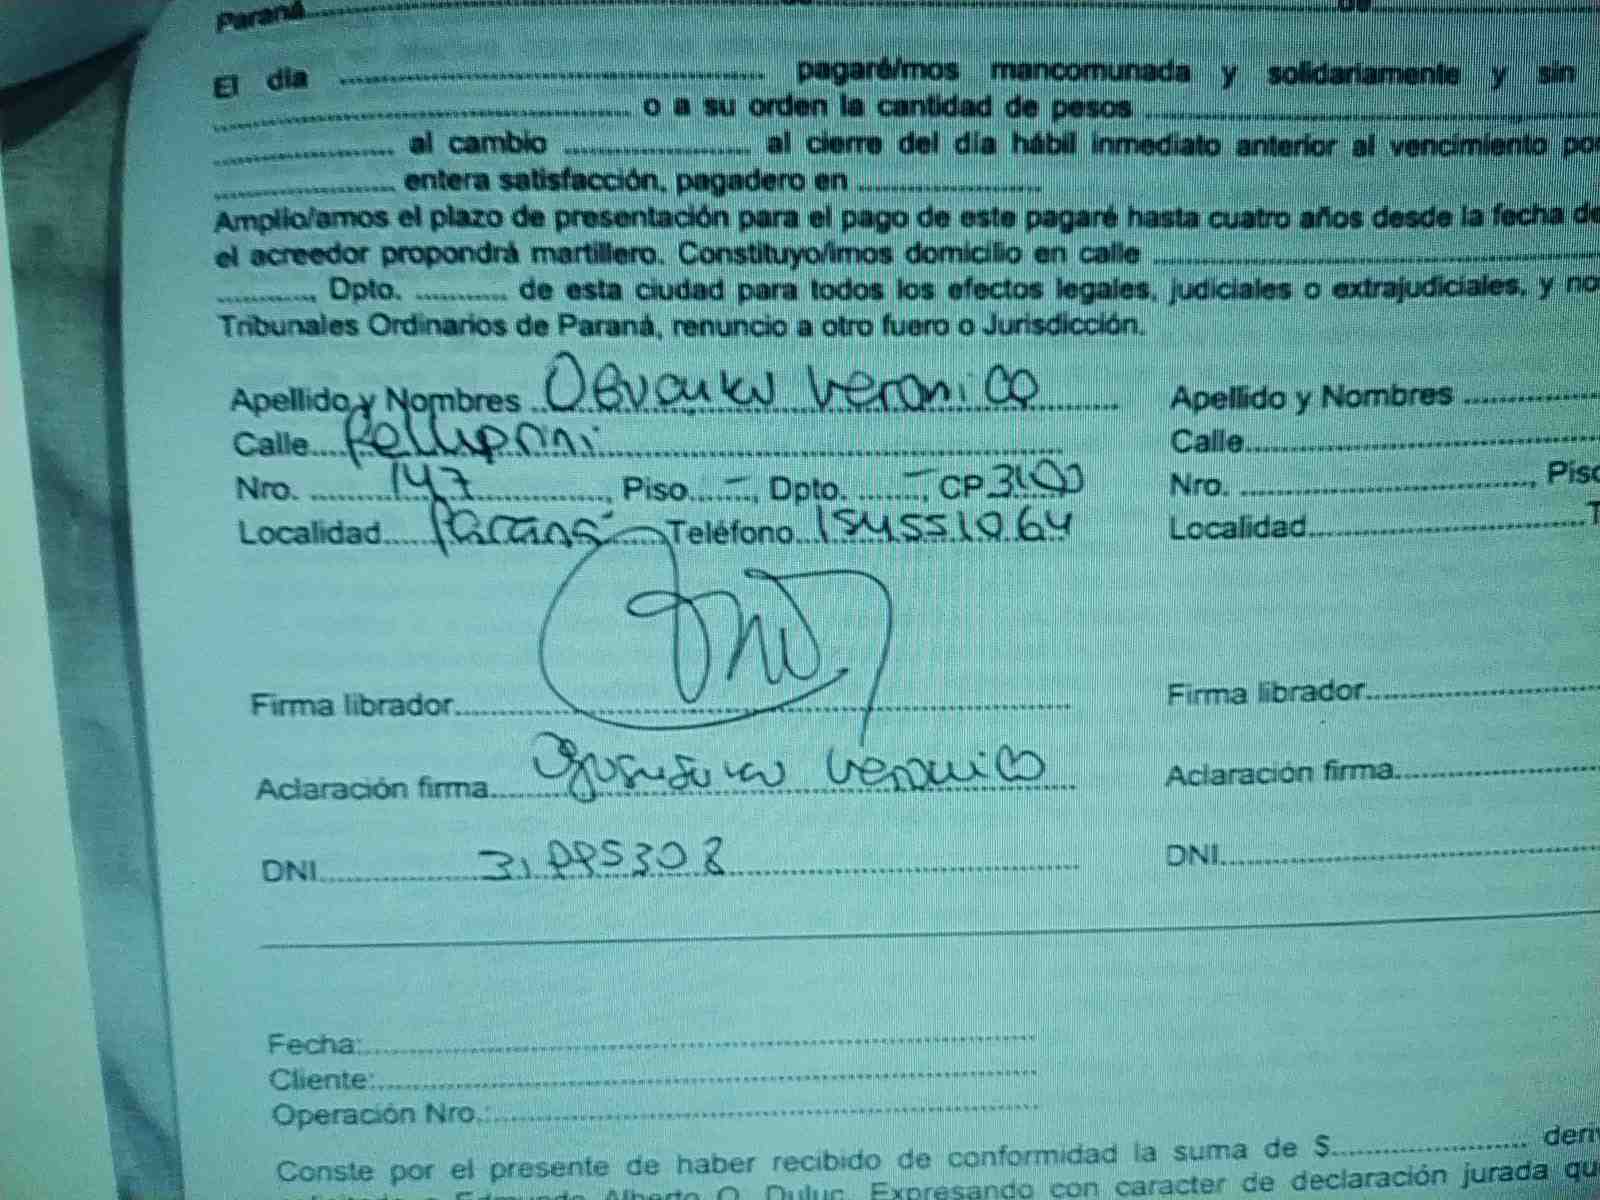 Paraná
El día ........ pagaré/mos mancomunada y solidariamente y sin
........ o a su orden la cantidad de pesos ........
........ al cambio ........ al cierre del día hábil inmediato anterior al vencimiento por
........ entera satisfacción, pagadero en ........
Amplio/amos el plazo de presentación para el pago de este pagaré hasta cuatro años desde la fecha de
el acreedor propondrá martillero. Constituyo/imos domicilio en calle ........
........, Dpto. ........ de esta ciudad para todos los efectos legales, judiciales o extrajudiciales, y no
Tribunales Ordinarios de Paraná, renuncio a otro fuero o Jurisdicción.
Apellido y Nombres Veronica Apellido y Nombres
Calle Pellegrini Calle
Nro. 147, Piso -, Dpto. -, CP 3100 Nro. ........, Piso
Localidad Paraná Teléfono 154551064 Localidad
Firma librador Firma librador
Aclaración firma Veronica Aclaración firma
DNI DNI
Fecha:
Cliente:
Operación Nro.:
Conste por el presente de haber recibido de conformidad la suma de $ ........ deri
Edmundo Alberto O. Duluc. Expresando con caracter de declaración jurada qu